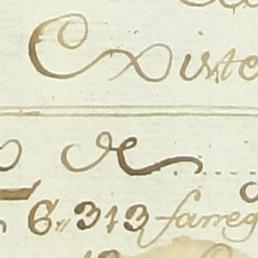 Existe
de
6„ 313 faneg